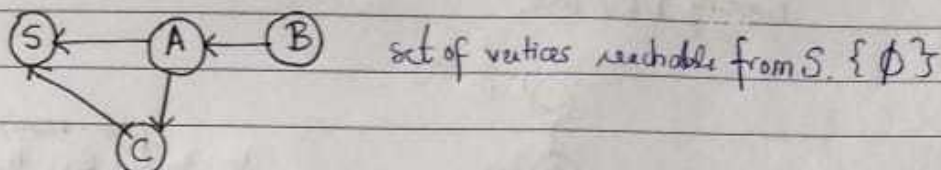 S A B set of vertices reachable from S. { ϕ }
C